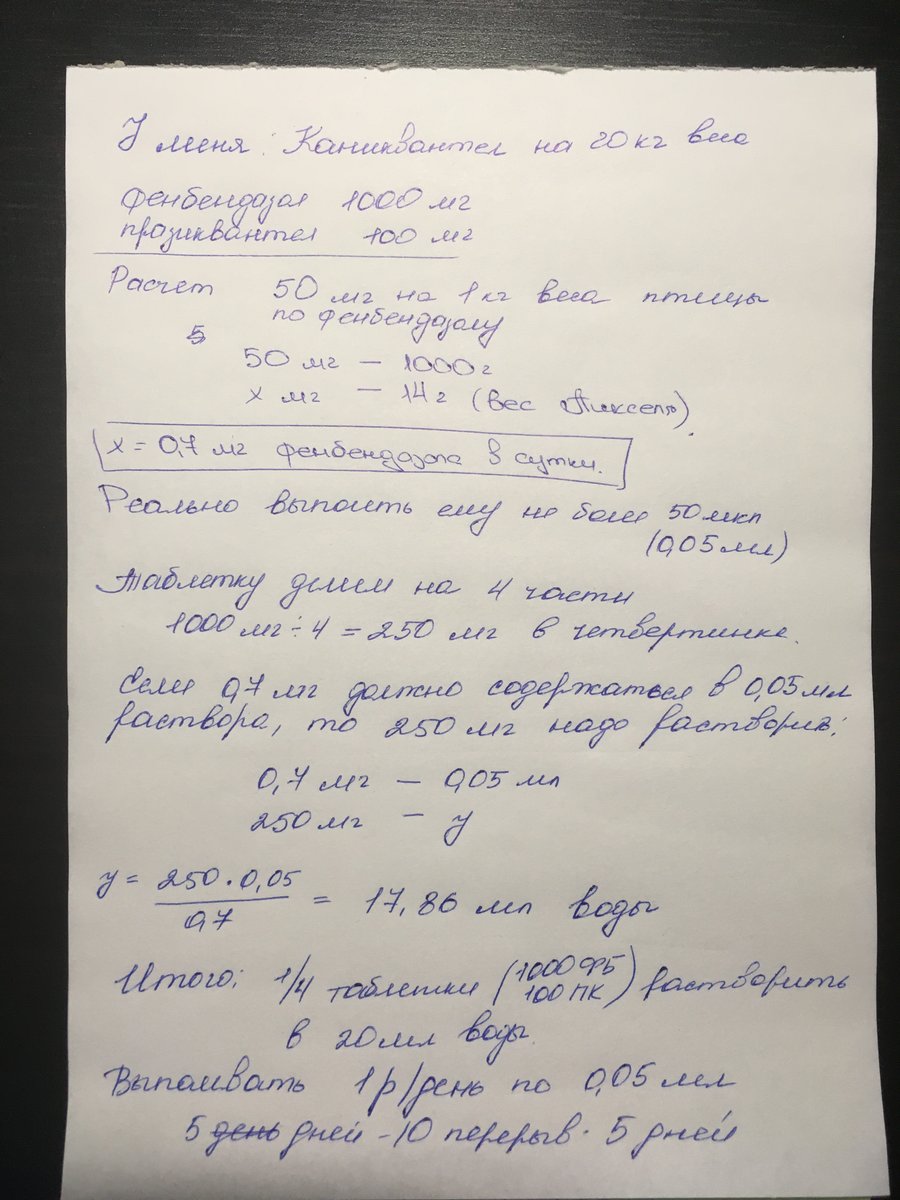 У меня: Каниквантел на 20 кг веса
фенбендазол 1000 мг
празиквантел 100 мг
Расчет 50 мг на 1 кг веса птицы
по фенбендазолу
5
50 мг – 1000 г
х мг – 14 г (вес Пиксель).
х = 0,7 мг фенбендазола в сутки.
Реально выпоить ему не более 50 мкл
(0,05 мл)
Таблетку делим на 4 части
1000 мг ÷ 4 = 250 мг в четвертинке.
Если 0,7 мг должно содержаться в 0,05 мл
раствора, то 250 мг надо растворить:
0,7 мг – 0,05 мл
250 мг – у
у = 250 · 0,05 / 0,7 = 17,86 мл воды
Итого: 1/4 таблетки (1000 ФБ 100 ПК) растворить
в 20 мл воды.
Выпаивать 1 р/день по 0,05 мл
5 день дней – 10 перерыв · 5 дней